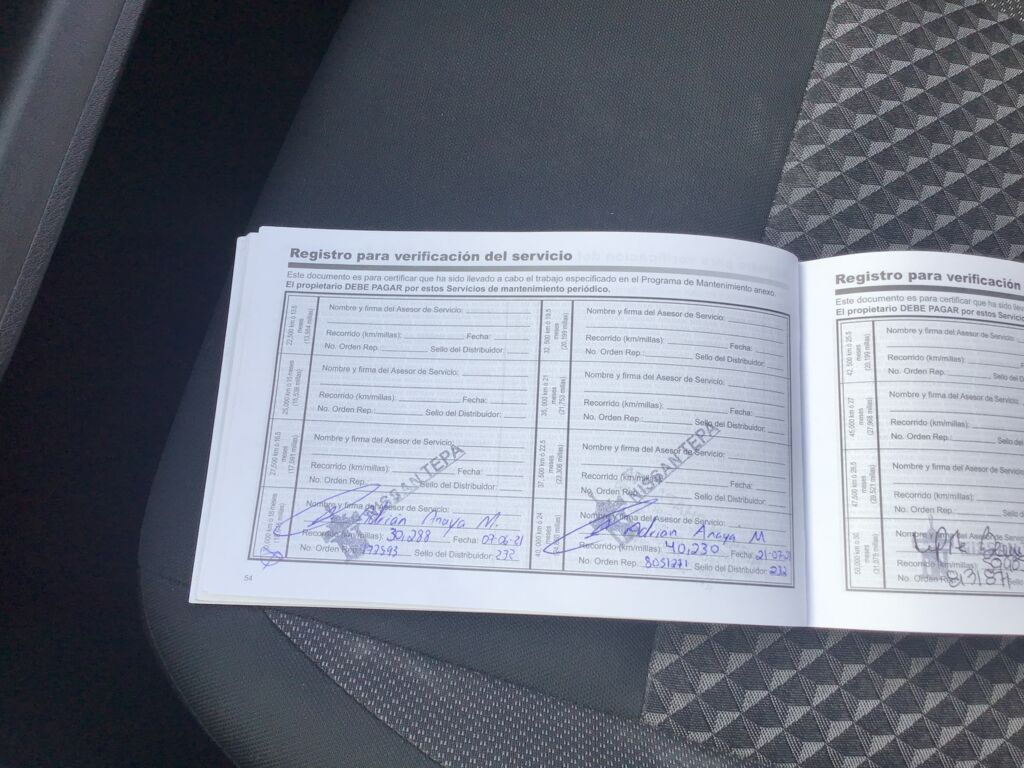 Registro para verificación del servicio
Este documento es para certificar que ha sido llevado a cabo el trabajo especificado en el Programa de Mantenimiento anexo.
El propietario DEBE PAGAR por estos Servicios de mantenimiento periódico.
22,500 km ó 13.5 meses
Nombre y firma del Asesor de Servicio:
Recorrido (km/millas): Fecha:
No. Orden Rep.: Sello del Distribuidor:
25,000 km ó 15 meses
Nombre y firma del Asesor de Servicio:
Recorrido (km/millas): Fecha:
No. Orden Rep.: Sello del Distribuidor:
27,500 km ó 16.5 meses
Nombre y firma del Asesor de Servicio:
Recorrido (km/millas): Fecha:
No. Orden Rep.: Sello del Distribuidor:
NISSAN TEPA
ó 18 meses
Nombre y firma del Asesor de Servicio:
Adrian Anaya M.
Recorrido (km/millas): 30,288 Fecha: 07-06-21
No. Orden Sello del Distribuidor: 232
54
32,500 km ó 19.5 meses
(20,199 millas)
Nombre y firma del Asesor de Servicio:
Recorrido (km/millas): Fecha:
No. Orden Rep.: Sello del Distribuidor:
35,000 km ó 21 meses
(21,753 millas)
Nombre y firma del Asesor de Servicio:
Recorrido (km/millas): Fecha:
No. Orden Rep.: Sello del Distribuidor:
37,500 km ó 22.5 meses
(23,306 millas)
Nombre y firma del Asesor de Servicio:
Recorrido (km/millas): Fecha:
No. Orden Rep.: Sello del Distribuidor:
NISSAN TEPA
40,000 km ó 24 meses
Nombre y firma del Asesor de Servicio:
Adrian Anaya M
Recorrido (km/millas): 40,230 Fecha: 21-07-21
No. Orden Rep.: 8051271 Sello del Distribuidor: 232
Registro para verificación
Este documento es para certificar que ha sido
El propietario DEBE PAGAR por estos
42,500 km ó 25.5 meses
Nombre y firma del Asesor de Servicio
Recorrido (km/millas):
No. Orden Rep.: Sello del
45,000 km ó 27 meses
(27,968 millas)
Nombre y firma del Asesor de Servicio
Recorrido (km/millas):
No. Orden Rep.: Sello del
47,500 km ó 28.5 meses
(29,521 millas)
Nombre y firma del Asesor de Servicio
Recorrido (km/millas):
No. Orden Rep.: Sello
50,000 km ó 30 meses
(31,075 millas)
Nombre y firma del Asesor de
Recorrido (km/millas):
No. Orden 8131871